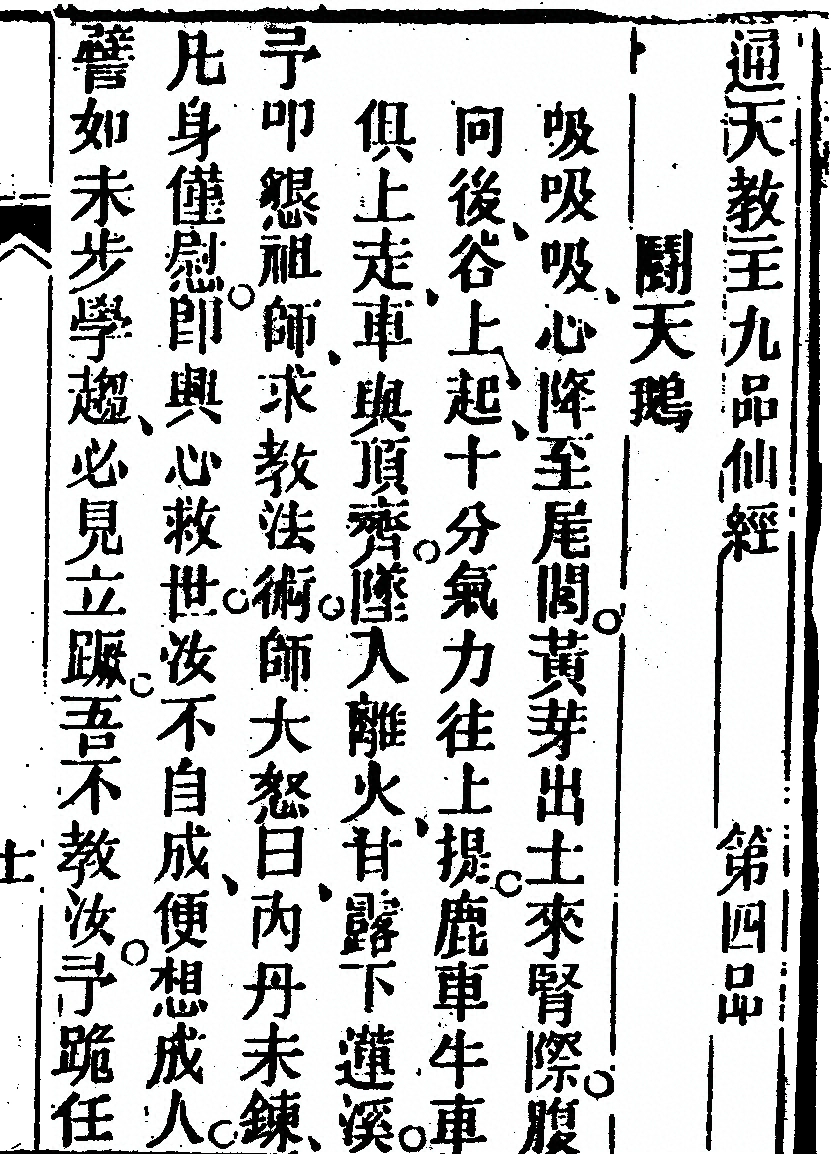 通天教主九品仙經 第四品
鬪天鵝
吸吸吸、心降至尾閭。黃芽出土來腎際。腹
向後、谷上、起、十分氣力往上提。鹿車牛車
俱上走、車與頂齊。墜入離火、甘露下蓮溪。
予叩懇祖師、求教法術。師大怒曰、內丹未鍊、
凡身僅慰。即興心救世。汝不自成、便想成人。
譬如未步學趨、必見立蹶。吾不教汝。予跪任